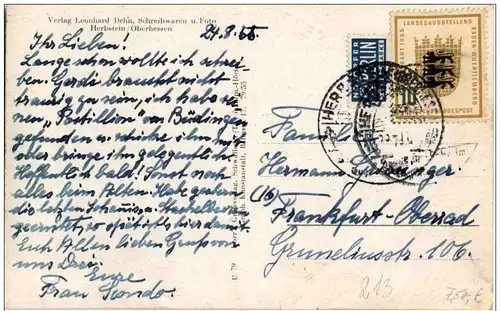 Verlag Leonhard Dehn, Schreibwaren u. Foto
Herbstein/Oberhessen
24.8.55.
Ihr Lieben!
Lange schon wollte ich schrei-
ben. Gerdi braucht nicht
traurig zu sein, ich habe
"Postillion" von Büdingen
gefunden u. schicke ihn
oder bringe ihn gelegentlich
Hoffentlich bald! Sonst noch
alles beim Alten. Habe gestern
die letzten Johannis- Stachelbeeren
geerntet, so spät ist's hier
Euch Allen lieben Gruß von
uns Drei.
Eure
Frau
U 79
LANDESAUSSTELLUNG
BADEN-WÜRTTEMBERG
1955
BERLIN
HERBSTEIN
Familie
Hermann
(16)
Frankfurt-Oberrad
Gruneliusstr. 106.
213
7,50,€